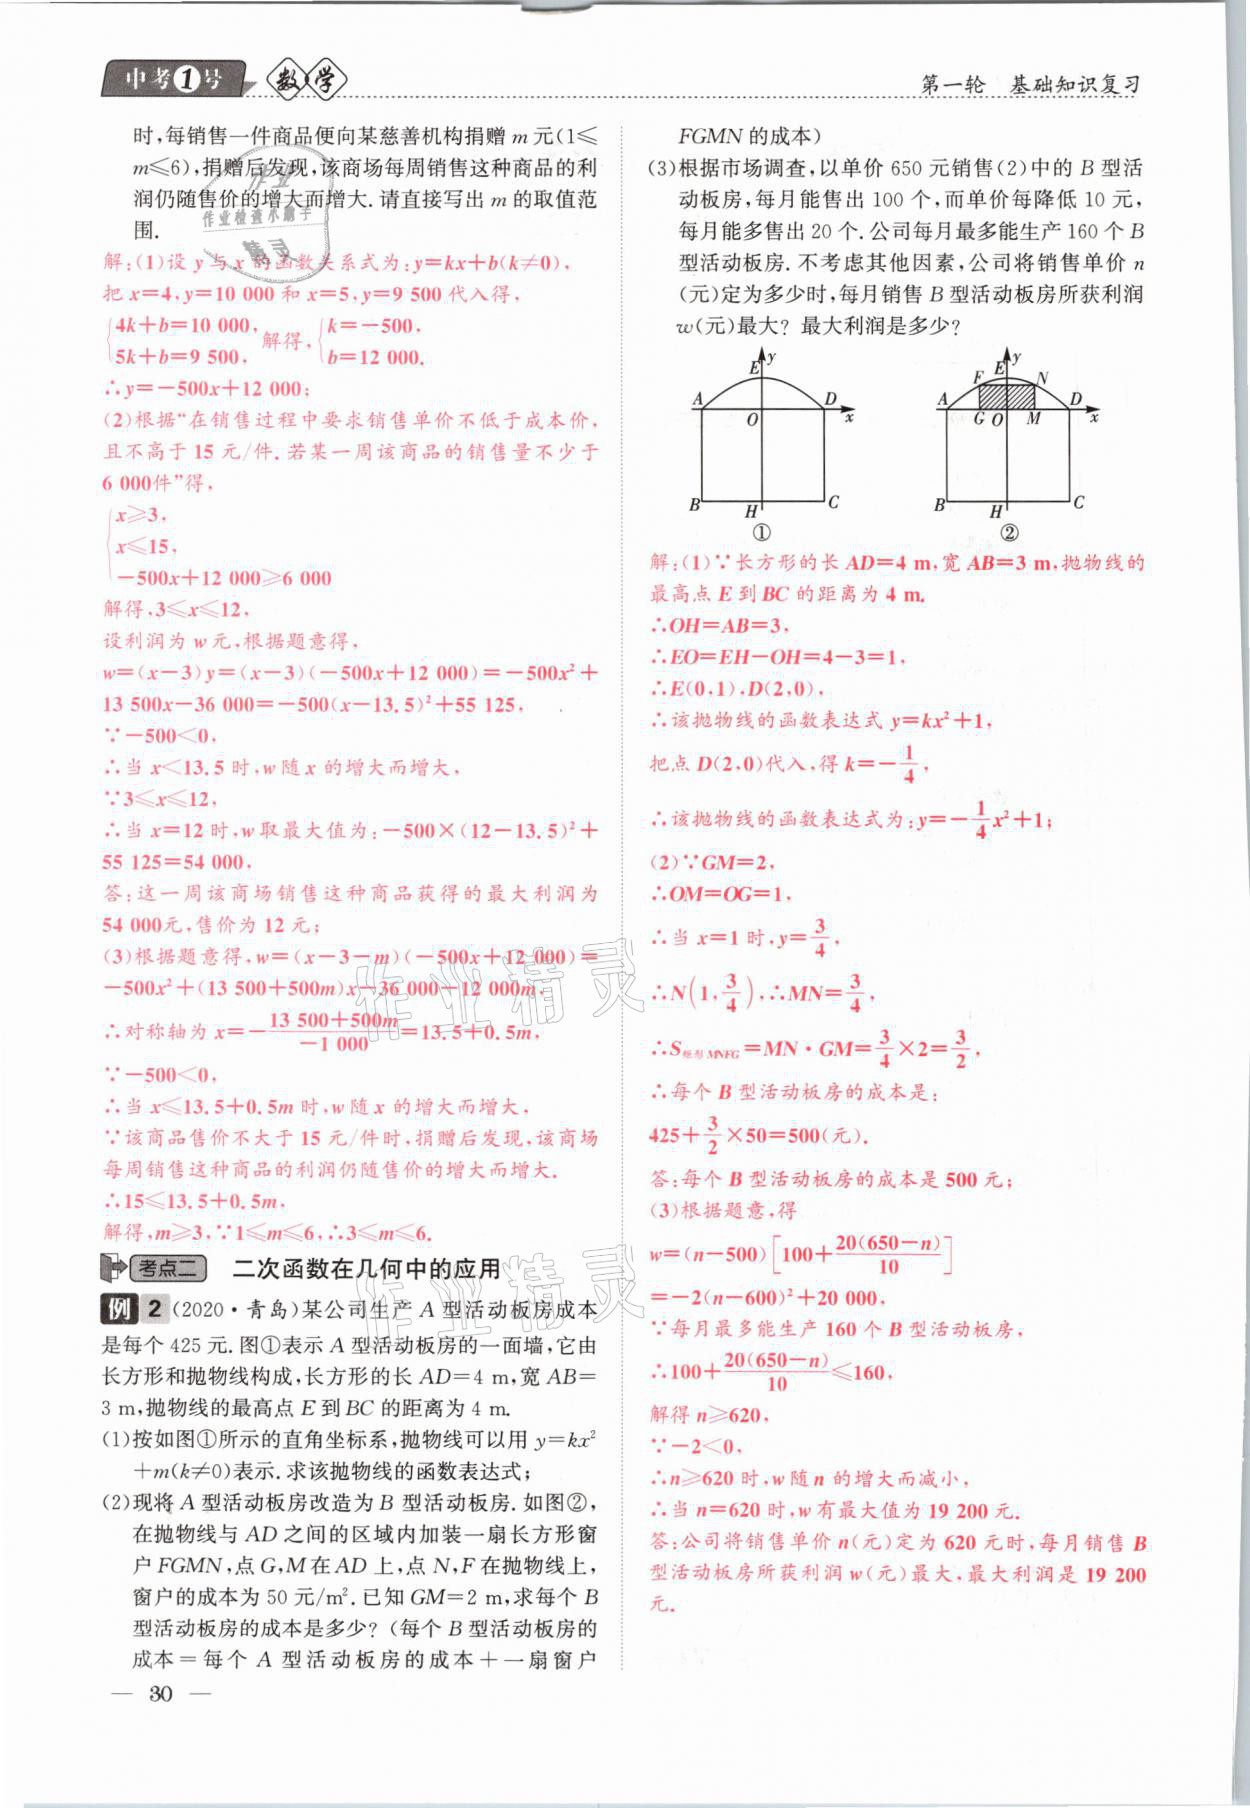 中考1号 数学
第一轮 基础知识复习
时,每销售一件商品便向某慈善机构捐赠 m 元(1≤
m≤6),捐赠后发现,该商场每周销售这种商品的利
润仍随售价的增大而增大.请直接写出 m 的取值范
围.
解:(1)设 y 与 x 的函数关系式为:y=kx+b(k≠0),
把 x=4,y=10 000 和 x=5,y=9 500 代入得,
{4k+b=10 000, 5k+b=9 500, 解得, {k=-500, b=12 000.
∴y=-500x+12 000;
(2)根据“在销售过程中要求销售单价不低于成本价,
且不高于 15 元/件.若某一周该商品的销售量不少于
6 000件”得,
{x≥3,
x≤15,
-500x+12 000≥6 000
解得,3≤x≤12,
设利润为 w 元,根据题意得,
w=(x-3)y=(x-3)(-500x+12 000)=-500x²+
13 500x-36 000=-500(x-13.5)²+55 125,
∵-500<0,
∴当 x<13.5 时,w 随 x 的增大而增大,
∵3≤x≤12,
∴当 x=12 时,w 取最大值为:-500×(12-13.5)²+
55 125=54 000,
答:这一周该商场销售这种商品获得的最大利润为
54 000元,售价为 12 元;
(3)根据题意得,w=(x-3-m)(-500x+12 000)=
-500x²+(13 500+500m)x-36 000-12 000m,
∴对称轴为 x=-(13 500+500m)/(-1 000)=13.5+0.5m,
∵-500<0,
∴当 x≤13.5+0.5m 时,w 随 x 的增大而增大,
∵该商品售价不大于 15 元/件时,捐赠后发现,该商场
每周销售这种商品的利润仍随售价的增大而增大.
∴15≤13.5+0.5m,
解得,m≥3,∵1≤m≤6,∴3≤m≤6.
考点二 二次函数在几何中的应用
例 2 (2020·青岛)某公司生产 A 型活动板房成本
是每个 425 元.图①表示 A 型活动板房的一面墙,它由
长方形和抛物线构成,长方形的长 AD=4 m,宽 AB=
3 m,抛物线的最高点 E 到 BC 的距离为 4 m.
(1)按如图①所示的直角坐标系,抛物线可以用 y=kx²
+m(k≠0)表示.求该抛物线的函数表达式;
(2)现将 A 型活动板房改造为 B 型活动板房.如图②,
在抛物线与 AD 之间的区域内加装一扇长方形窗
户 FGMN,点 G,M 在 AD 上,点 N,F 在抛物线上,
窗户的成本为 50 元/m².已知 GM=2 m,求每个 B
型活动板房的成本是多少?(每个 B 型活动板房的
成本=每个 A 型活动板房的成本+一扇窗户
— 30 —
FGMN 的成本)
(3)根据市场调查,以单价 650 元销售(2)中的 B 型活
动板房,每月能售出 100 个,而单价每降低 10 元,
每月能多售出 20 个.公司每月最多能生产 160 个 B
型活动板房.不考虑其他因素,公司将销售单价 n
(元)定为多少时,每月销售 B 型活动板房所获利润
w(元)最大? 最大利润是多少?
E y A D O x B H C ①
F E y N A D G O M x B H C ②
解:(1)∵长方形的长 AD=4 m,宽 AB=3 m,抛物线的
最高点 E 到 BC 的距离为 4 m.
∴OH=AB=3,
∴EO=EH-OH=4-3=1,
∴E(0,1),D(2,0),
∴该抛物线的函数表达式 y=kx²+1,
把点 D(2,0)代入,得 k=-1/4,
∴该抛物线的函数表达式为:y=-1/4x²+1;
(2)∵GM=2,
∴OM=OG=1,
∴当 x=1 时,y=3/4,
∴N(1,3/4),∴MN=3/4,
∴S矩形MNFG=MN·GM=3/4×2=3/2,
∴每个 B 型活动板房的成本是:
425+3/2×50=500(元).
答:每个 B 型活动板房的成本是 500 元;
(3)根据题意,得
w=(n-500)[100+20(650-n)/10]
=-2(n-600)²+20 000,
∵每月最多能生产 160 个 B 型活动板房,
∴100+20(650-n)/10≤160,
解得 n≥620,
∵-2<0,
∴n≥620 时,w 随 n 的增大而减小,
∴当 n=620 时,w 有最大值为 19 200 元.
答:公司将销售单价 n(元)定为 620 元时,每月销售 B
型活动板房所获利润 w(元)最大,最大利润是 19 200
元.
作业
作业检查小助手
精灵
作业精灵
作业精灵